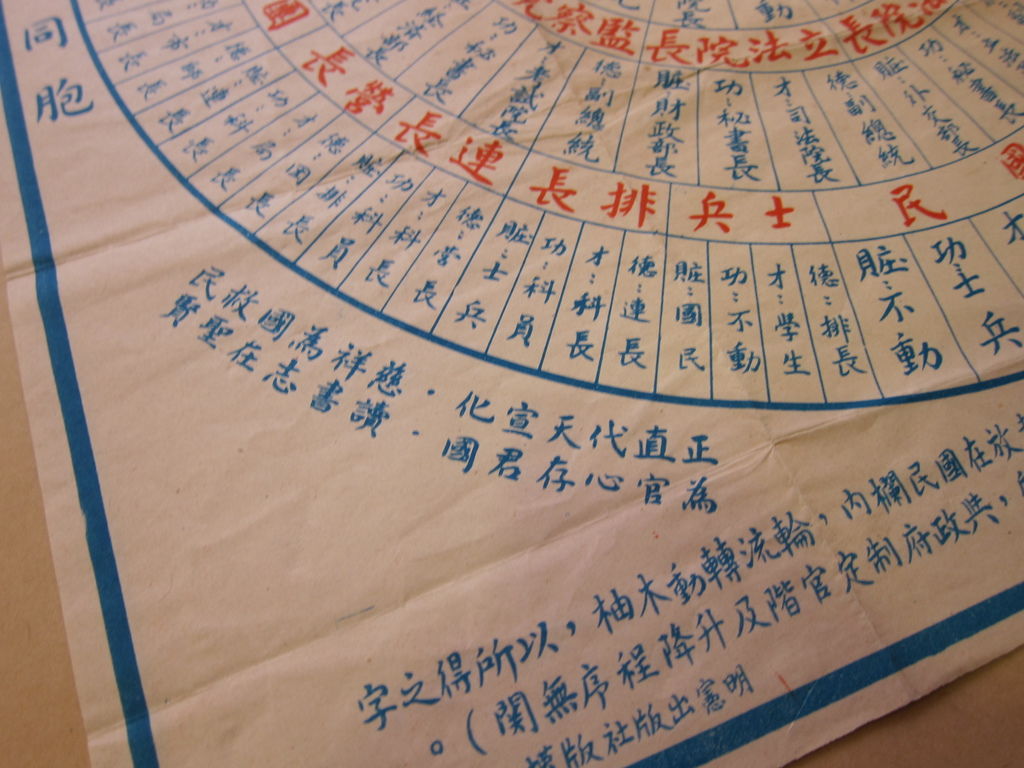 同胞
立法院長
監察院
國
民
士兵
排長
連長
營長
團
功：秘書長
賍：外交部長
德：副總統
才：司法院長
功：秘書長
賍：財政部長
德：副總統
才：考試院長
功：秘書長
經濟部長
才
功：士兵
賍：不動
德：排長
才：學生
功：不動
賍：國民
德：連長
才：科長
功：科員
賍：士兵
德：營長
才：科長
功：科員
賍：排長
德：團長
才：局長
功：科長
正直代天宣化．慈祥為國救民
為官心存君國．讀書志在聖賢
放在國民欄內，輪流轉動木柚，以所得之字
，與政府制定官階及升降程序無關)。
明憲出版社版